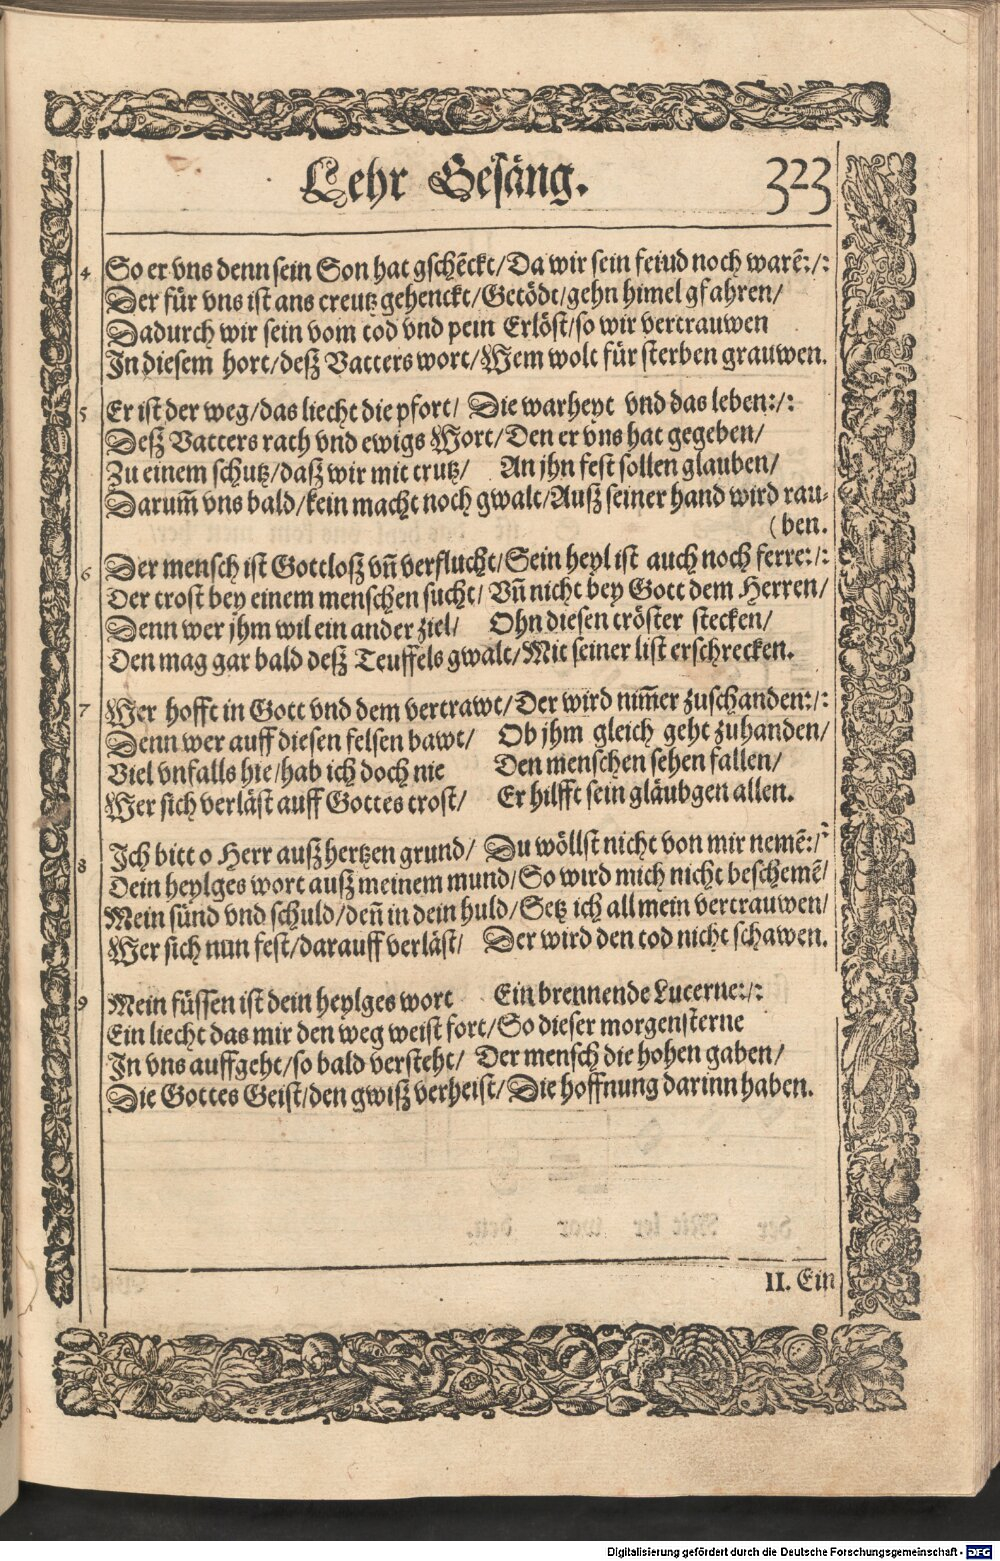 Lehr Gesäng. 323
4 So er vns denn sein Son hat gschēckt/Da wir sein feiud noch warē:/:
Der für vns ist ans creutz gehenckt/Getödt/gehn himel gfahren/
Dadurch wir sein vom tod vnd pein Erlöst/so wir vertrauwen
In diesem hort/deß Vatters wort/Wem wolt für sterben grauwen.
5 Er ist der weg/das liecht die pfort/ Die warheyt vnd das leben:/:
Deß Vatters rath vnd ewigs Wort/Den er vns hat gegeben/
Zu einem schutz/daß wir mit trutz/ An jhn fest sollen glauben/
Darum̄ vns bald/kein macht noch gwalt/Auß seiner hand wird rau-
(ben.
6 Der mensch ist Gottloß vn̄ verflucht/Sein heyl ist auch noch ferre:/:
Der trost bey einem menschen sucht/Vn̄ nicht bey Gott dem Herren/
Denn wer jhm wil ein ander ziel/ Ohn diesen tröster stecken/
Den mag gar bald deß Teuffels gwalt/Mit seiner list erschrecken.
7 Wer hofft in Gott vnd dem vertrawt/Der wird nim̄er zuschanden:/:
Denn wer auff diesen felsen bawt/ Ob jhm gleich geht zuhanden/
Viel vnfalls hie/hab ich doch nie Den menschen sehen fallen/
Wer sich verläst auff Gottes trost/ Er hilfft sein gläubgen allen.
8 Ich bitt o Herr auß hertzen grund/ Du wöllst nicht von mir nemē:/:
Dein heylges wort auß meinem mund/So wird mich nicht beschemē/
Mein sünd vnd schuld/den̄ in dein huld/Setz ich all mein vertrauwen/
Wer sich nun fest/darauff verläst/ Der wird den tod nicht schawen.
9 Mein füssen ist dein heylges wort Ein brennende Lucerne:/:
Ein liecht das mir den weg weist fort/So dieser morgensterne
In vns auffgeht/so bald versteht/ Der mensch die hohen gaben/
Die Gottes Geist/den gwiß verheist/Die hoffnung darinn haben.
II. Ein
Digitalisierung gefördert durch die Deutsche Forschungsgemeinschaft - DFG